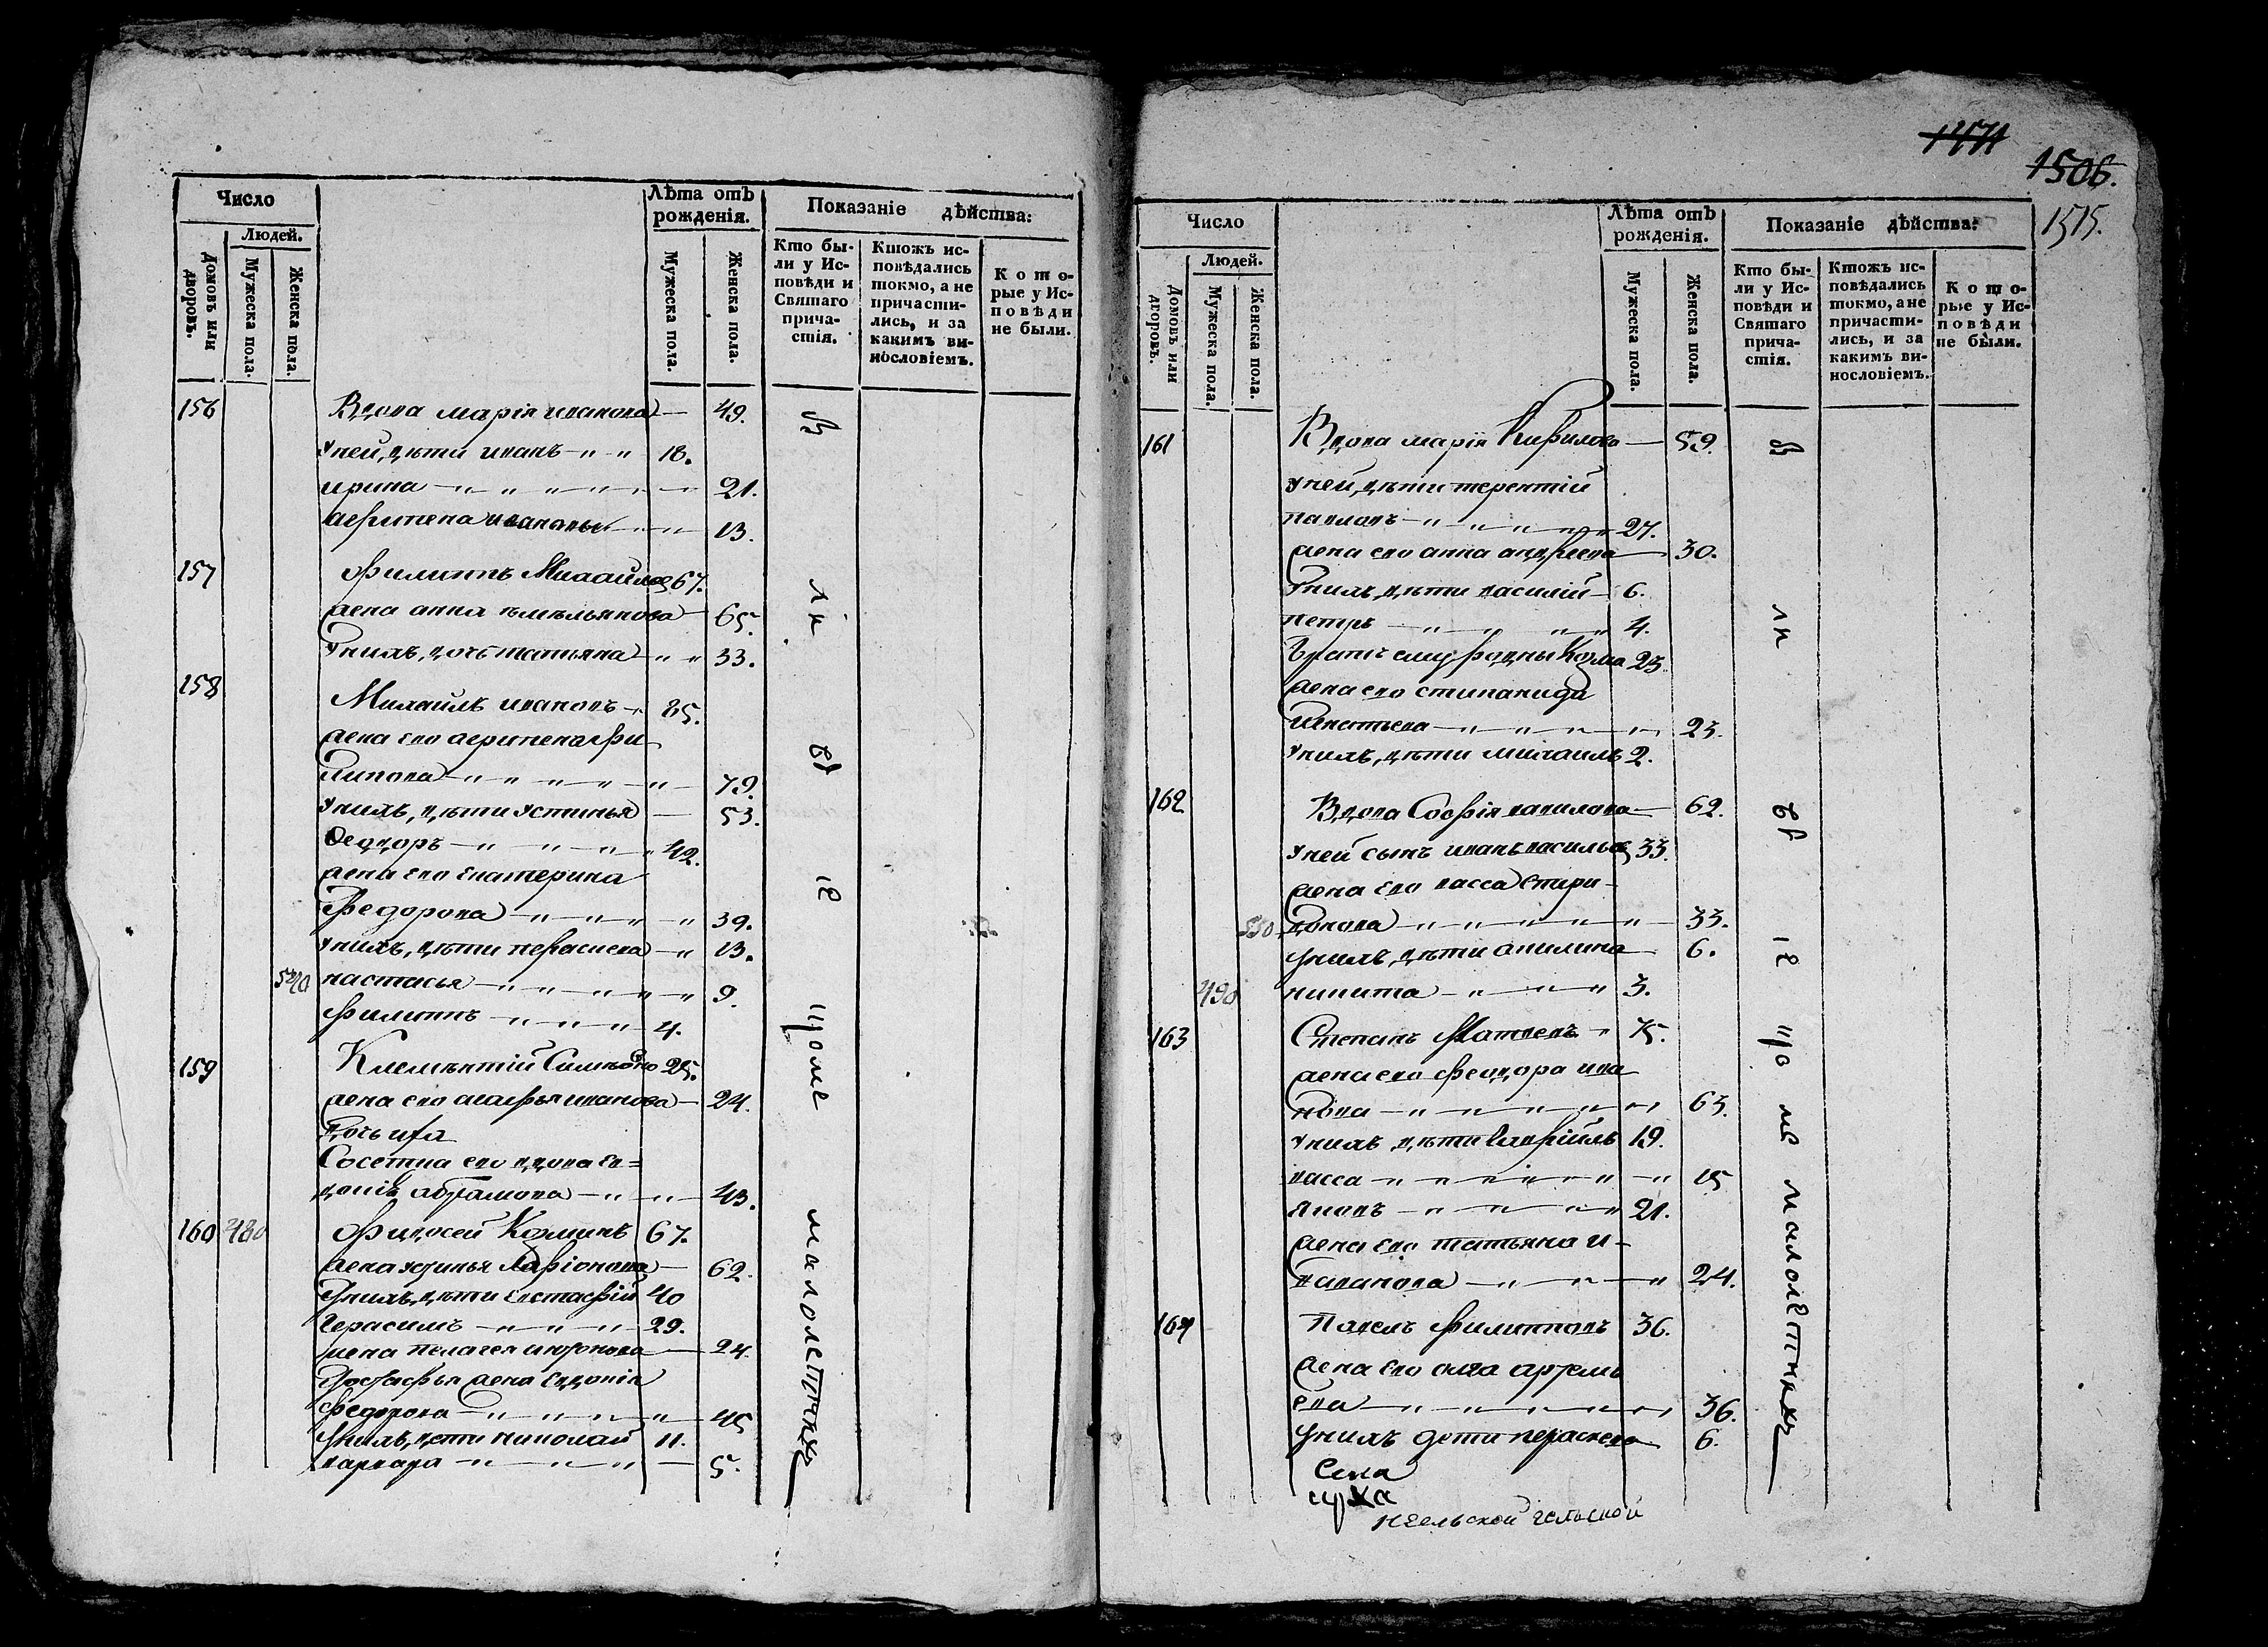 Число
Людей.
Домовъ или дворовъ.
Мужеска пола.
Женска пола.
Лѣта отъ рожденія.
Мужеска пола.
Женска пола.
Показаніе дѣйства:
Кто бы-
ли у Ис-
повѣди и
Святаго
прича-
стія.
Ктожъ ис-
повѣдались
токмо, а не
причасти-
лись, и за
какимъ ви-
нословіемъ.
Кото-
рые у Ис-
повѣди
не были.
156 Вдова марія иванова 49.
уней, дѣти иванъ 18.
ирина 21.
агрипена ивановы 13.
157 Филиппъ Михайлов 67.
жена анна емельянова 65.
унихъ, дочь татьяна 33.
158 Михаилъ ивановъ 85.
жена его агрипена фи
липова 79.
унихъ, дѣти устинья 53.
Феодоръ 42.
жена его екатерина
Федорова 39.
унихъ, дѣти пераскева 13.
540 настасья 9.
филиппъ 4.
159 Клементій Симеоно 25.
жена его агафья иванова 24.
дочь ихъ
Сосетка его вдова ев=
докія абрамова 43.
160 480 Фидосей Козминъ 67.
жена устинья Ларіонова 62.
Унихъ, дѣти евстафій 40
Герасимъ 29.
жена пелагея 24.
жена евдокія
федорова 45
Унихъ, дети николай 11.
варвара 5.
вси
малолетныхъ
1471
1506.
1515.
Число
Людей.
Домовъ или дворовъ.
Мужеска пола.
Женска пола.
Лѣта отъ
рожденія.
Мужеска пола.
Женска пола.
Показаніе дѣйства:
Кто бы-
ли у Ис-
повѣди и
Святаго
прича-
стія.
Ктожъ ис-
повѣдались
токмо, а не
причасти-
лись, и за
какимъ ви-
нословіемъ.
Кото-
рые у Ис-
повѣди
не были.
161 Вдова марія Кирилова 59.
уней, дѣти терентій
павловъ 27.
жена его анна андреева 30.
Унихъ, дѣти василій 6.
петръ 4.
Братъ ему родны Козма 23.
жена его стипанида
Игнатьева 23.
унихъ, дѣти михаилъ 2.
162 Вдова Софія данилова 62.
уней сынъ иванъ васильев 33.
жена его васса Спири-
550 донова 33.
унихъ, дѣти акилина 6.
490 никита 3.
163 Степанъ Матвеевъ 75.
жена его феодора ива
нова 63.
унихъ дѣти Гавріилъ 19.
васса 15
яковъ 21.
жена его татьяна и-
ванова 24.
164 Павелъ филипповъ 36.
жена его ольга артемь
ева 36.
Унихъ дети пераскева 6.
Села
малолетныхъ